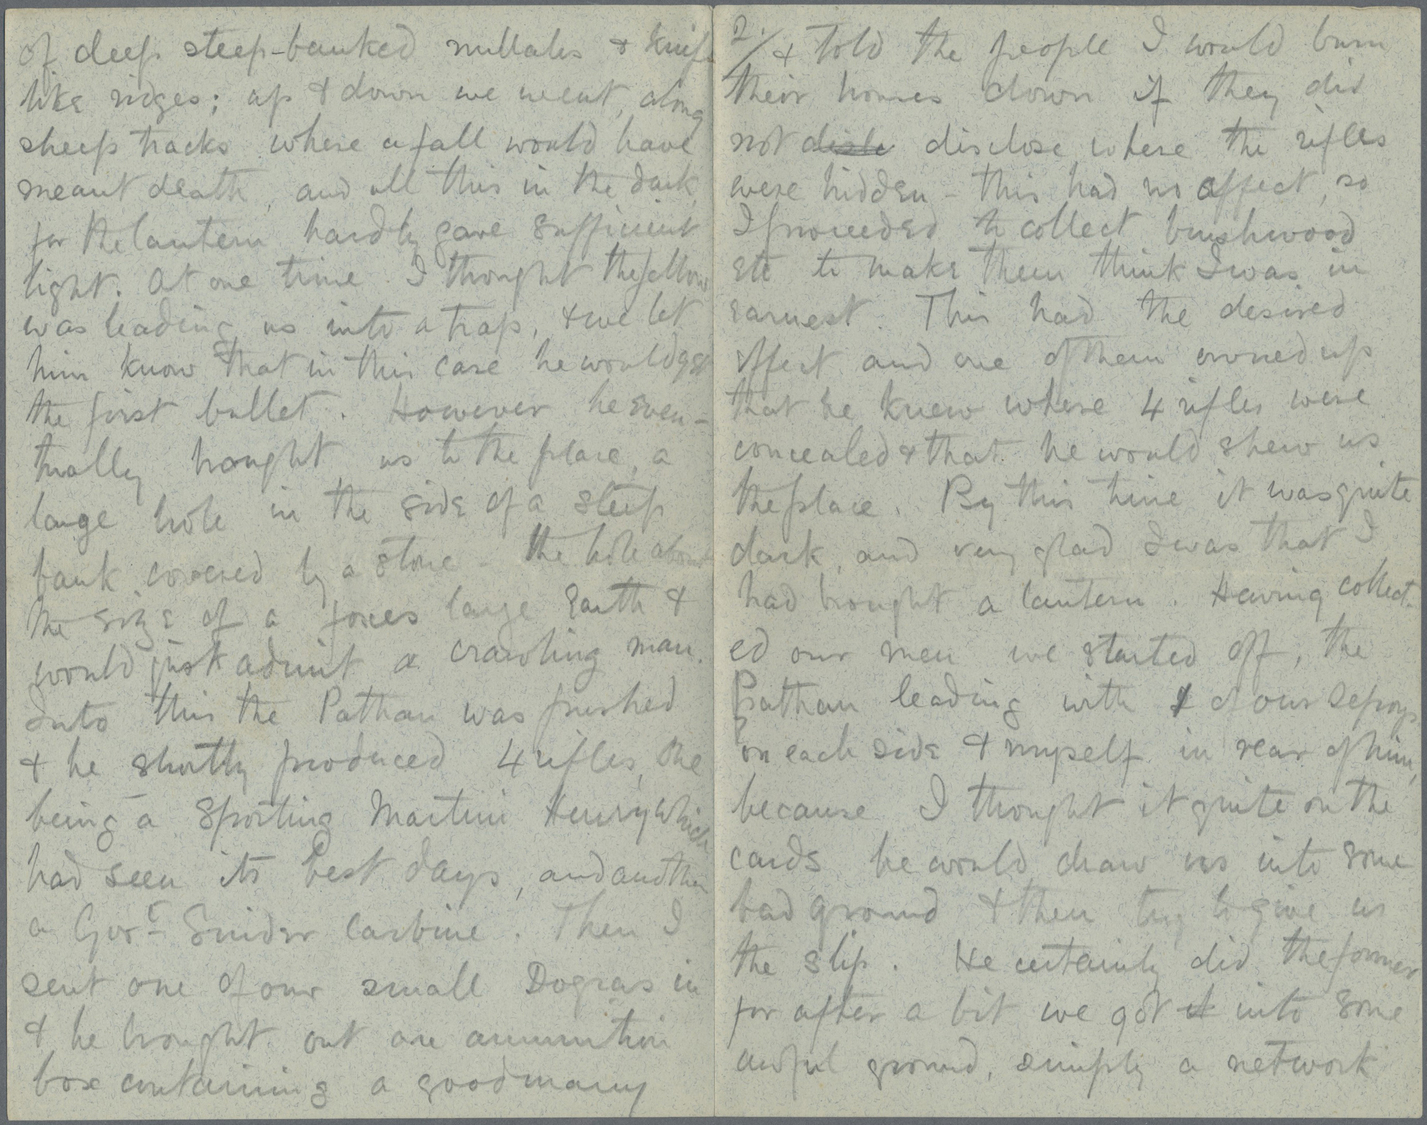 2/ & told the people I would burn
their homes down if they did
not discle disclose where the rifles
were hidden - this had no effect, so
I proceeded to collect brushwood
etc to make them think I was in
earnest. This had the desired
effect and one of them owned up
that he knew where 4 rifles were
concealed & that he would shew us
the place. By this time it was quite
dark, and very glad I was that I
had brought a lantern. Having collect-
ed our men we started off, the
Pathan leading with 1 of our Sepoys
on each side & myself in rear of him,
because I thought it quite on the
cards he would draw us into some
bad ground & then try to give us
the slip. He certainly did the former
for after a bit we got it into some
awful ground, simply a network
of deep steep-banked nullahs & knife
like ridges; up & down we went, along
sheep tracks where a fall would have
meant death, and all this in the dark,
for the lantern hardly gave sufficient
light. At one time I thought the fellow
was leading us into a trap, & we let
him know that in this case he would get
the first bullet. However he even-
tually brought us to the place, a
large hole in the side of a steep
bank covered by a stone - the hole about
the size of a foxes large earth &
would just admit a crawling man.
Into this the Pathan was pushed
& he shortly produced 4 rifles, one
being a Sporting Martini Henry which
had seen its best days, and another
a Govt Snider Carbine. Then I
sent one of our small Dogras in
& he brought out an ammunition
box containing a good many